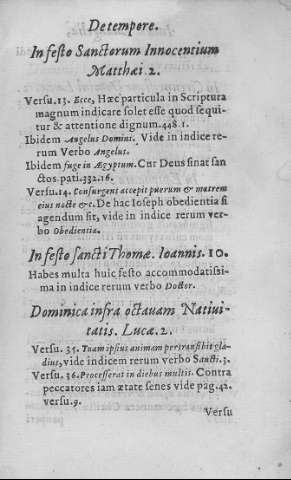 De tempore.
In festo Sanctorum Innocentium
Matthæi 2.
Versu. 13. Ecce, Hæc particula in Scriptura
magnum indicare solet esse quod sequi-
tur & attentione dignum. 448. 1.
Ibidem Angelus Domini. Vide in indice re-
rum Verbo Angelus.
Ibidem fuge in Ægyptum. Cur Deus sinat san
ctos pati. 332. 16.
Versu. 14. Consurgens accepit puerum & matrem
eius nocte &c. De hac Ioseph obedientia si
agendum sit, vide in indice rerum ver-
bo Obedientia.
In festo sancti Thomæ. Ioannis. 10.
Habes multa huic festo accommodatissi-
ma in indice rerum verbo Doctor.
Dominica infra octauam Natiui-
tatis. Lucæ. 2.
Versu. 35. Tuam ipsius animam pertransibit gla-
dius, vide indicem rerum verbo Sancti. 3.
Versu. 36. Processerat in diebus multis. Contra
peccatores iam ætate senes vide pag. 42.
versu. 9.
Versu